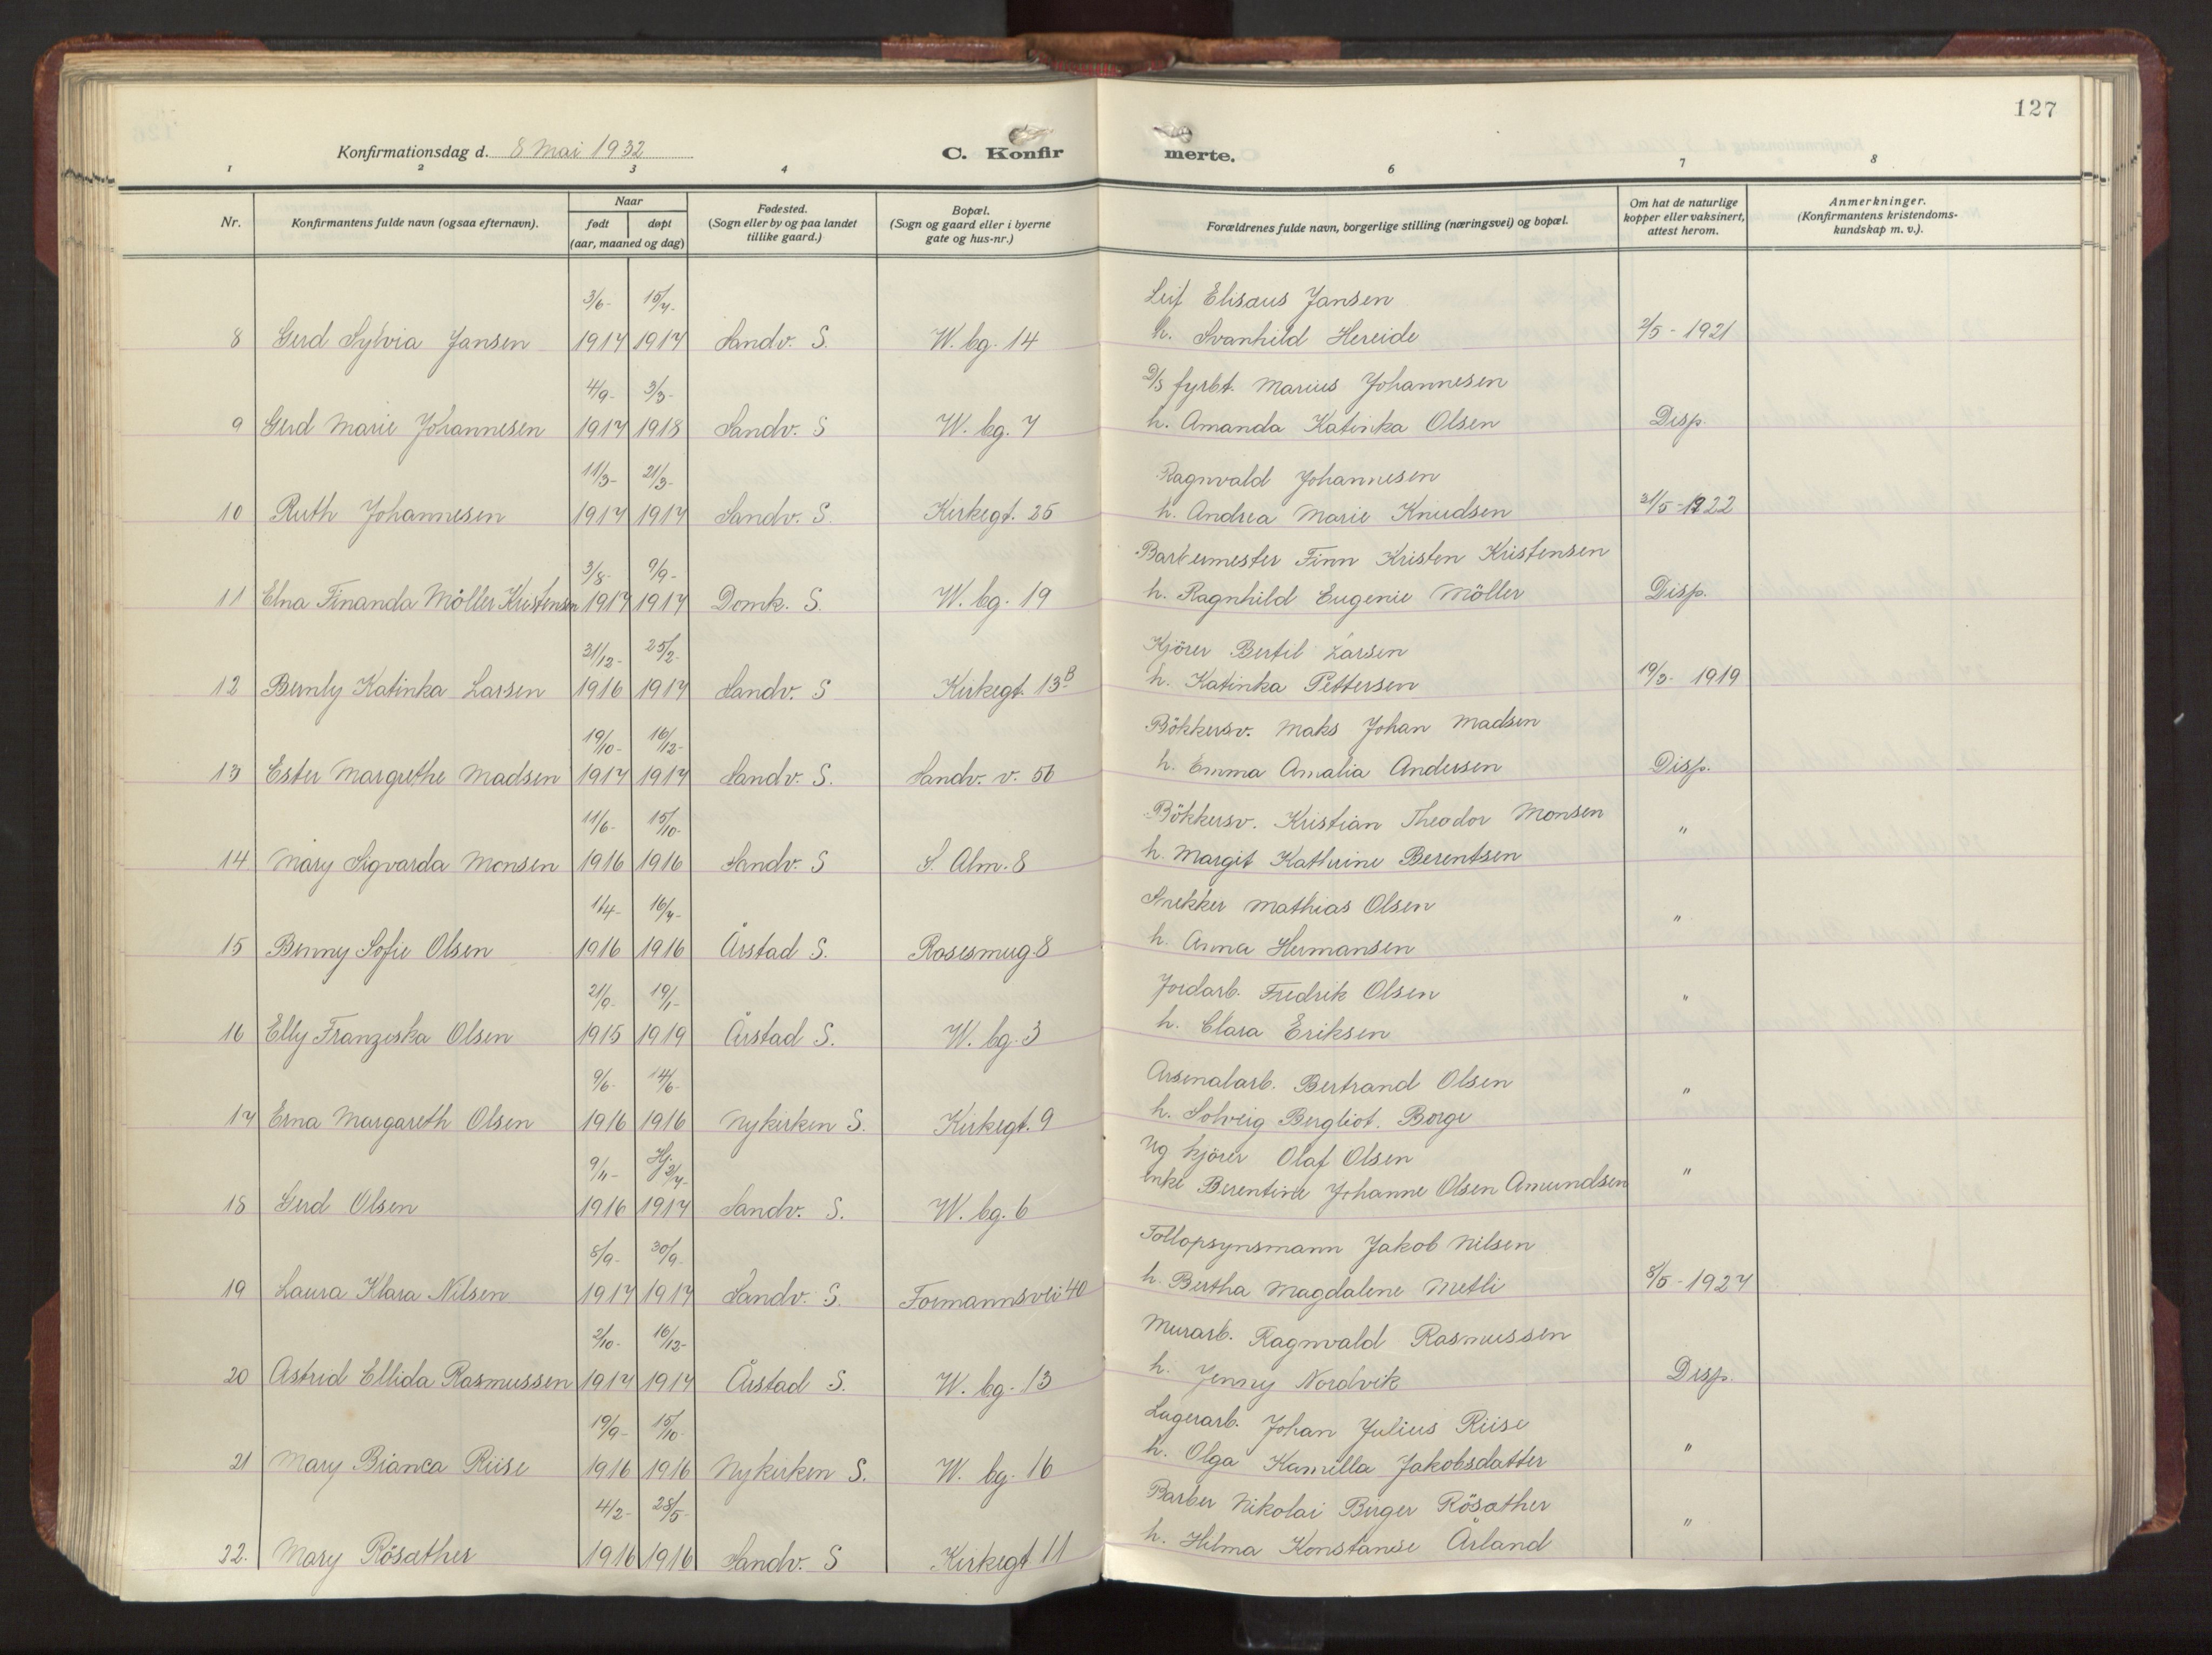 127
Konfirmationsdag d. 8 Mai 1932
C. Konfir merte.
1 2 3 4 5 6 7 8
Nr.
Konfirmantens fulde navn (ogsaa efternavn).
Naar
født døpt
(aar, maaned og dag)
Fødested.
(Sogn eller by og paa landet
tillike gaard.)
Bopæl.
(Sogn og gaard eller i byerne
gate og hus-nr.)
Forældrenes fulde navn, borgerlige stilling (næringsvei) og bopæl.
Om hat de naturlige
kopper eller vaksinert,
attest herom.
Anmerkninger.
(Konfirmantens kristendoms-
kundskap m. v.).
3/6- 15/7- Leif Elisæus Jansen
8 Gerd Sylvia Jansen 1917 1917 Sandv. S. W. bg. 14 h. Svanhild Hereide 2/5 - 1921
4/9- 3/3- D/S fyrbt. Marius Johannesen
9 Gerd Marie Johannesen 1917 1918 Sandv. S W. bg. 7 h. Amanda Katinka Olsen Disp.
11/3- 21/3- Ragnvald Johannesen
10 Ruth Johannesen 1917 1917 Sandv. S. Kirkegt. 25 h. Andrea Marie Knudsen 31/5-1922
3/8- 9/9- Barbermester Finn Kristen Kristensen
11 Elna Finanda Möller Kristensen 1917 1917 Domk. S. W. bg. 19 h. Ragnhild Eugenie Möller Disp.
31/12- 25/2- Kjörer Bertil Larsen
12 Bernly Katinka Larsen 1916 1917 Sandv. S Kirkegt. 13B h. Katinka Pettersen 19/3- 1919
19/10- 16/12- Bökkersv. Maks Johan Madsen
13 Ester Margrethe Madsen 1917 1917 Sandv. S. Sandv. v. 56 h. Emma Amalia Andersen Disp.
11/6- 15/10- Bökkersv. Kristian Theodor Monsen
14 Mary Sigvarda Monsen 1916 1916 Sandv. S S. Alm. 8 h. Margit Kathrine Berentsen "
1/4- 16/7- Snekker Mathias Olsen
15 Benny Sofie Olsen 1916 1916 Årstad S. Rosesmug. 8 h. Anna Hermansen "
21/9- 19/1- Jordarb. Fredrik Olsen
16 Elly Franziska Olsen 1915 1919 Årstad S. W. bg. 3 h. Clara Eriksen "
9/6- 14/6- Arsenalarb. Bertrand Olsen
17 Erna Margareth Olsen 1916 1916 Nykirken S. Kirkegt. 9 h. Solveig Bergliot. Borge "
9/11- Hj. 2/7- Ug kjörer Olaf Olsen
18 Gerd Olsen 1916 1917 Sandv. S. W. bg. 6 enke Berentine Johanne Olsen Amundsen "
8/9- 30/9- Tollopsynsmann Jakob Nilsen
19 Laura Klara Nilsen 1917 1917 Sandv. S. Formannsvei 40 h. Bertha Magdalene Metli 8/5 - 1927
2/10- 16/12- Murarb. Ragnvald Rasmussen
20 Astrid Ellida Rasmussen 1917 1917 Årstad S. W. bg. 13 h. Jenny Nordvik Disp.
19/9- 15/10- Lagerarb. Johan Julius Riise
21 Mary Bianca Riise 1916 1916 Nykirken S. W. bg. 16 h. Olga Kamilla Jakobsdatter "
4/2- 28/5- Barber Nikolai Birger Rösæther
22. Mary Rösæther 1916 1916 Sandv. S Kirkegt 11 h. Hilma Konstanse Årland "